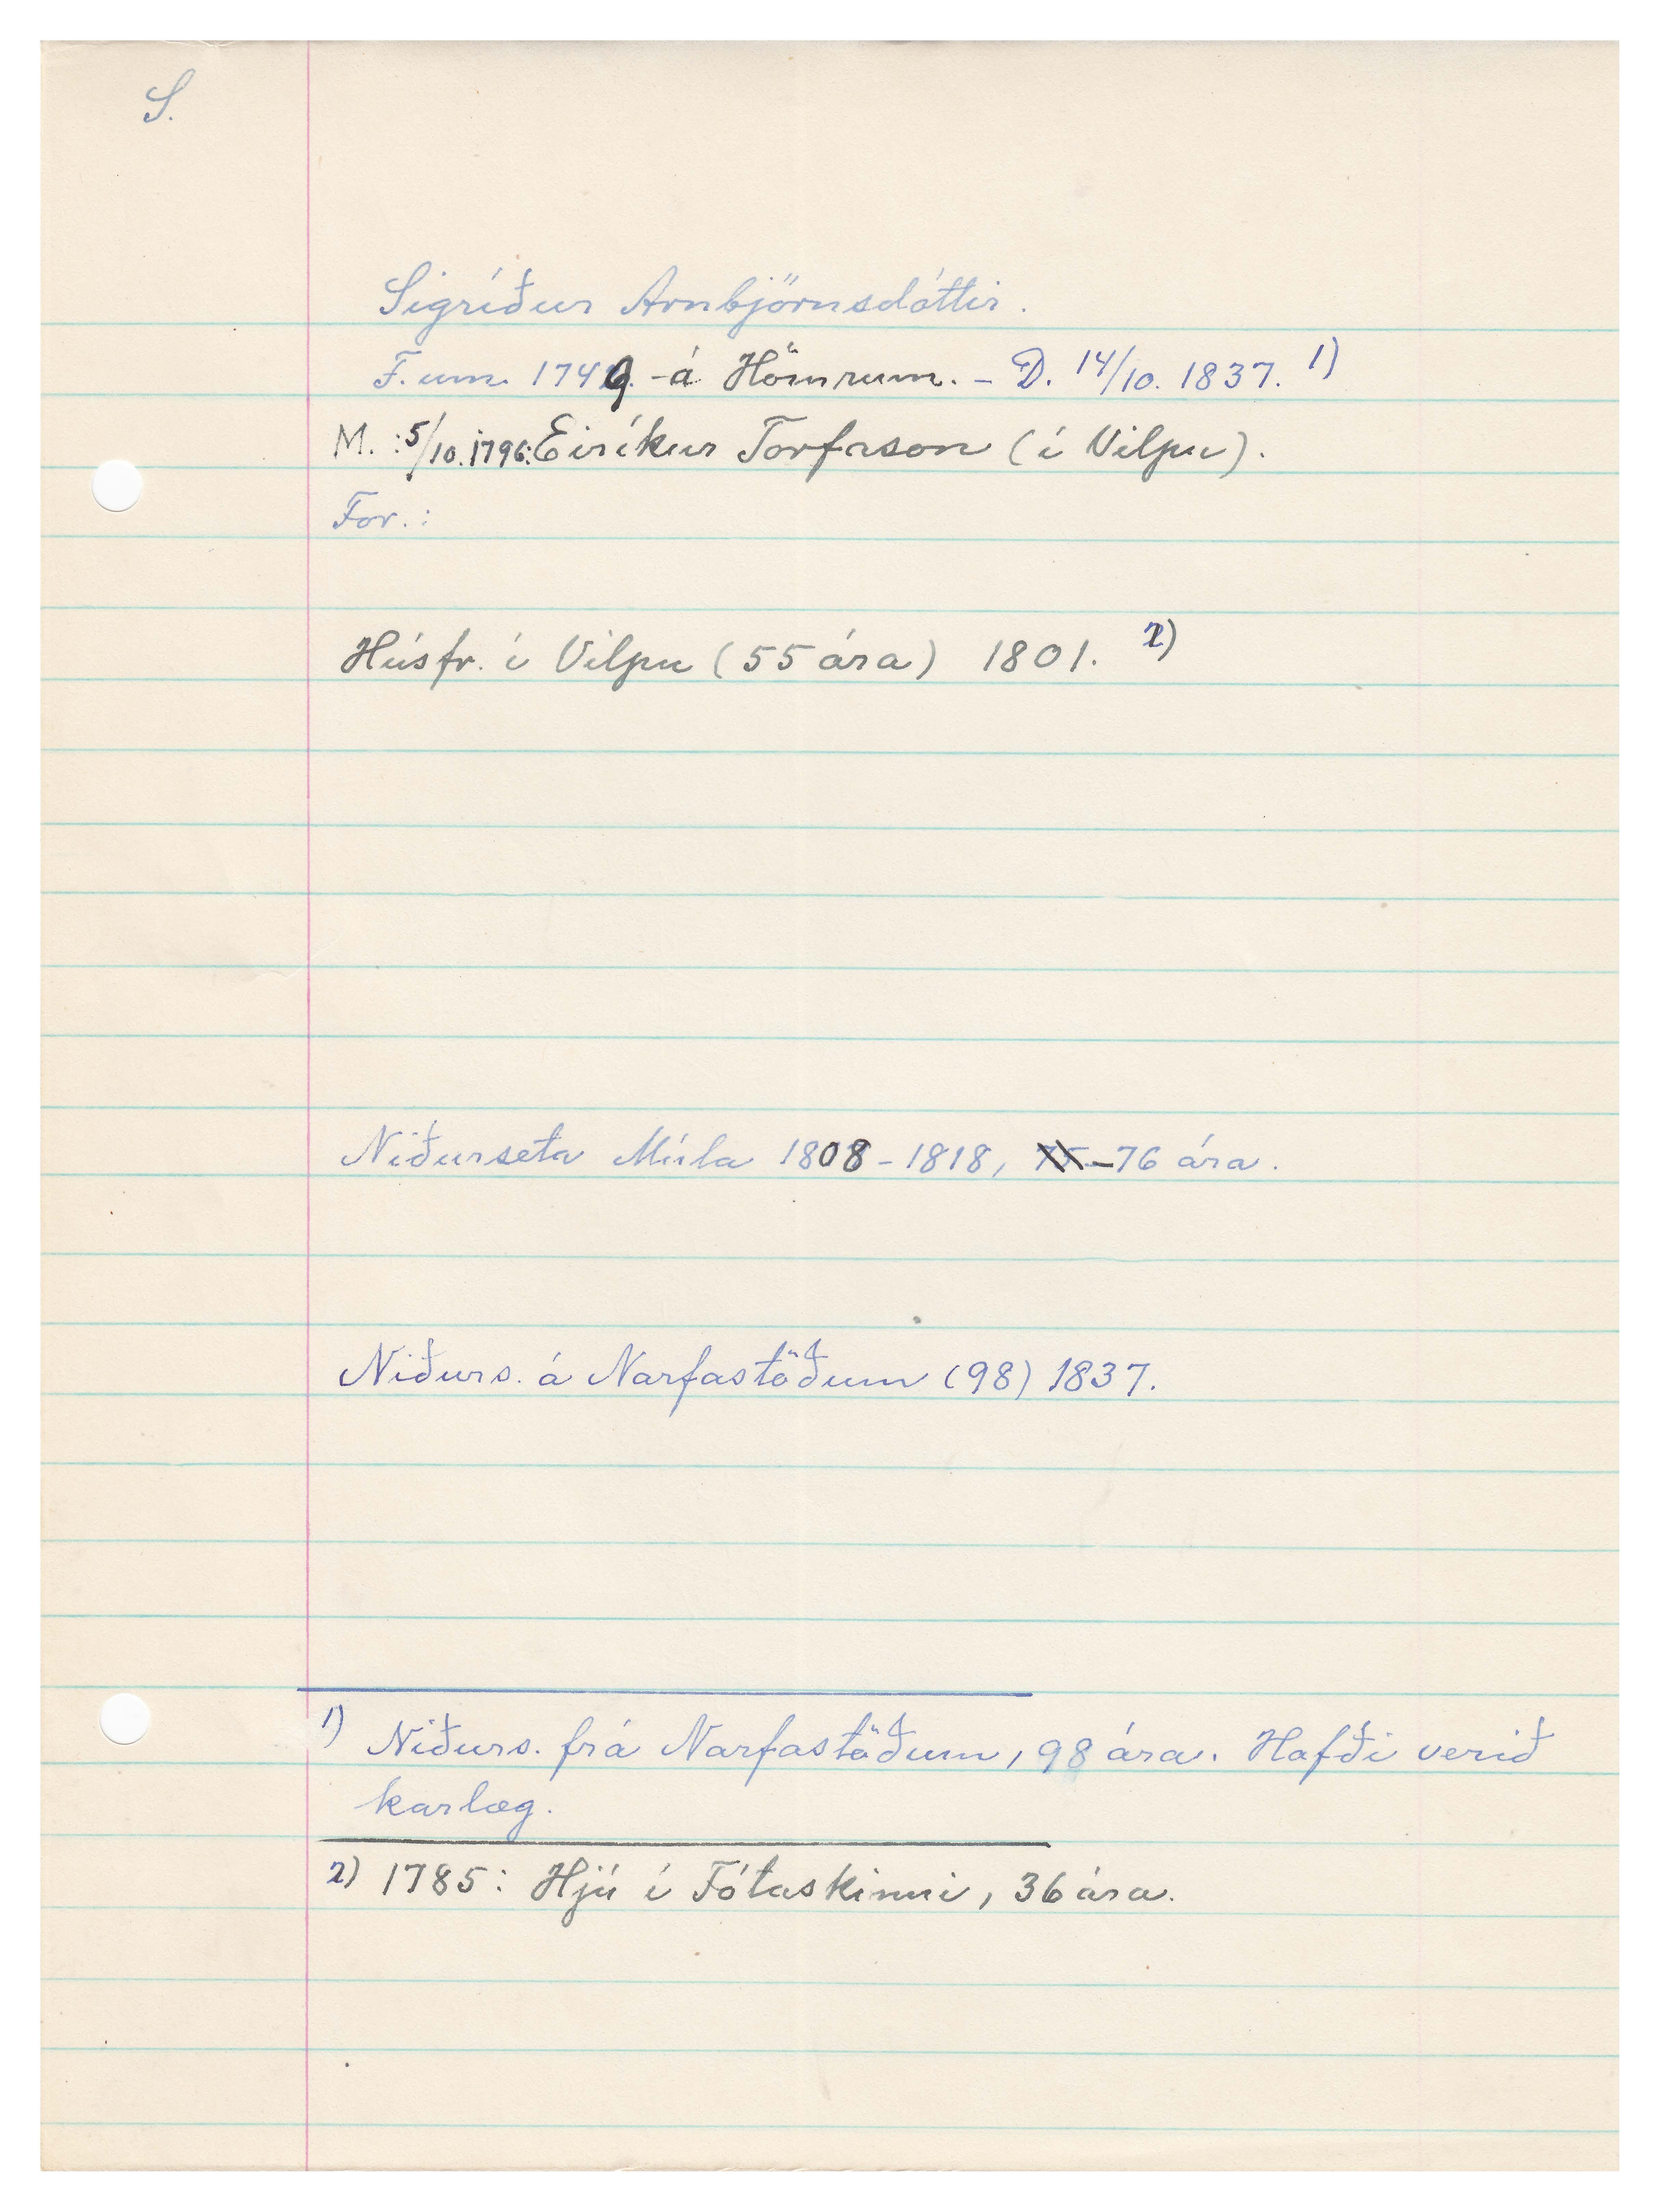 S.
Sigríður Arnbjörnsdóttir.
F. um 1749. - á Hömrum. - D. 14/10. 1837. 1)
M.: 5/10. 1796: Eiríkur Torfason (í Vilpu).
For.:
Húsfr. í Vilpu (55 ára) 1801. 2)
Niðurseta Múla 1808 - 1818, - 76 ára.
Niðurs. á Narfastöðum (98) 1837.
1) Niðurs. frá Narfastöðum, 98 ára. Hafði verið
karlæg.
2) 1785: Hjú í Fótaskinni, 36 ára.